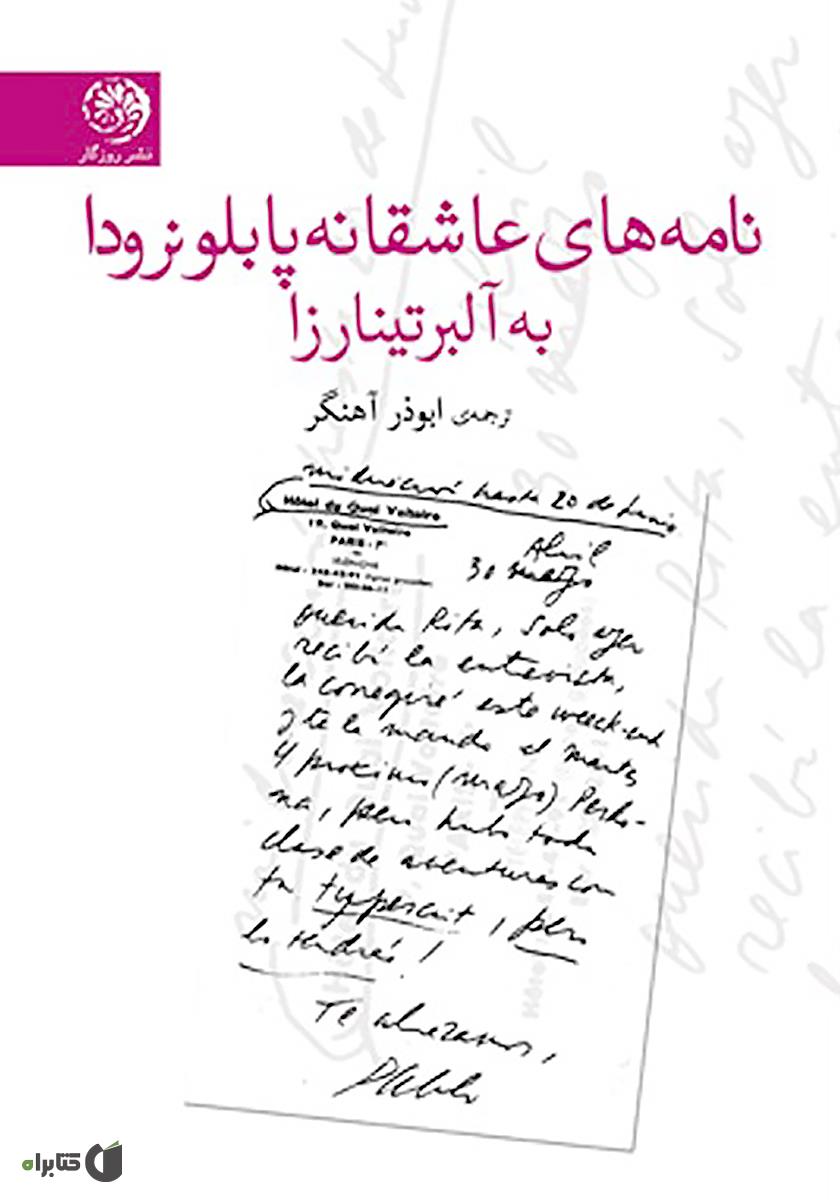 نشر روزگار
نامه‌های عاشقانه پابلو نرودا
به آلبرتینا رزا
ترجمه‌ی ابوذر آهنگر
hasta 20 de Junio
Hôtel du Quai Voltaire
19, Quai Voltaire
PARIS - 7e
Abril
30 marzo
querida Rita, solo ayer
recibí la entrevista,
la coregiré este week-end
y te la mando el martes
4 proximo (marzo) Perdo-
na, pero hubo toda
clase de aventuras con
tu typescript, pero
lo tendrás!
Te abrazamos,
کتابراه